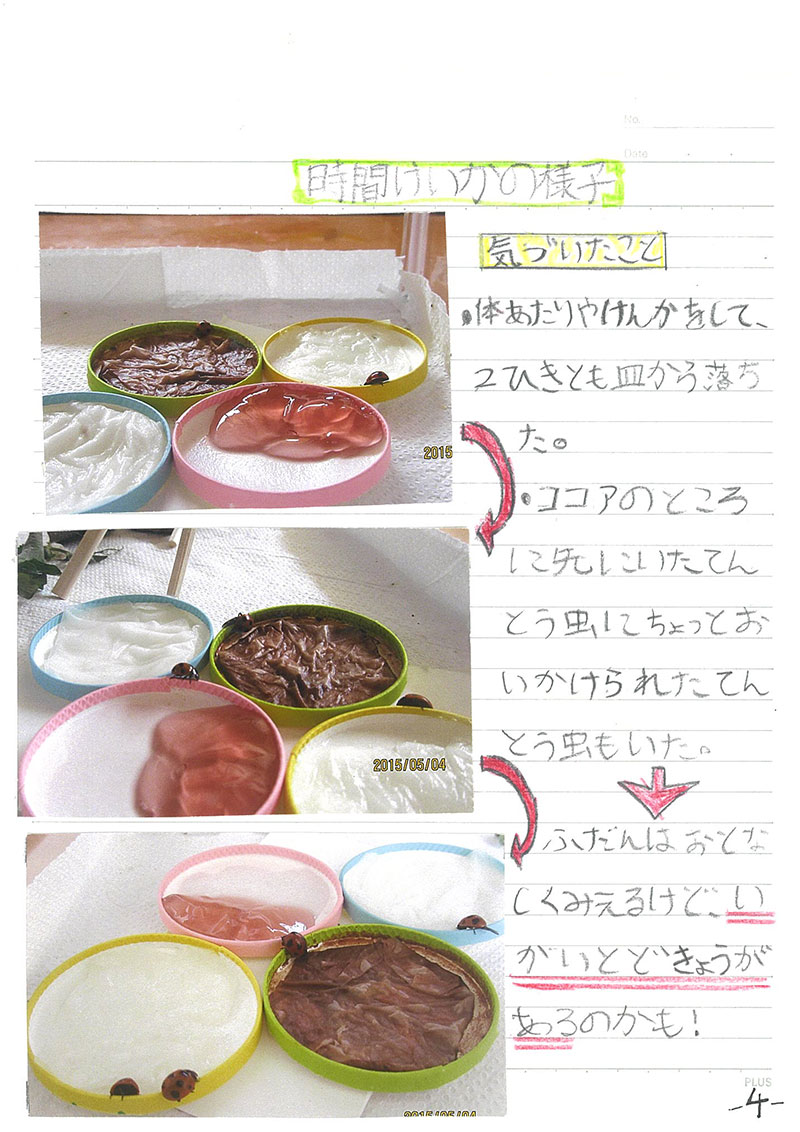 No.
Date
時間けいかの様子
気づいたこと
・体あたりやけんかをして、
2ひきとも皿から落ち
た。
・ココアのところ
に先にいたてん
とう虫にちょっとお
いかけられたてん
とう虫もいた。
ふだんはおとな
しくみえるけど、い
がいとどきょうが
あるのかも!
2015
2015/05/04
2015/05/04
PLUS
-4-